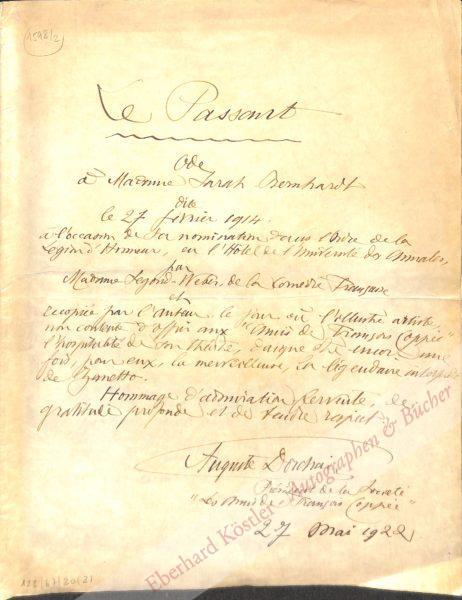 1598/2
Le Passant
Ode
à Madame Sarah Bernhardt
dite
le 27 février 1914
à l'occasion de sa nomination dans l'Ordre de la
Légion d'Honneur, en l'Hôtel de l'Université des Annales,
par
Madame Segond-Weber, de la Comédie Française
et
recopiée par l'auteur, le jour où l'illustre artiste,
non contente d'offrir aux "Amis de François Coppée"
l'hospitalité de son théâtre, daigne être encore une
fois, pour eux, la merveilleuse, la légendaire interprète
de Zanetto.
Hommage d'admiration fervente, de
gratitude profonde et de tendre respect
Auguste Dorchain
Président de la Société
"Les Amis de François Coppée"
27 Mai 1922
Eberhard Köstler Autographen & Bücher